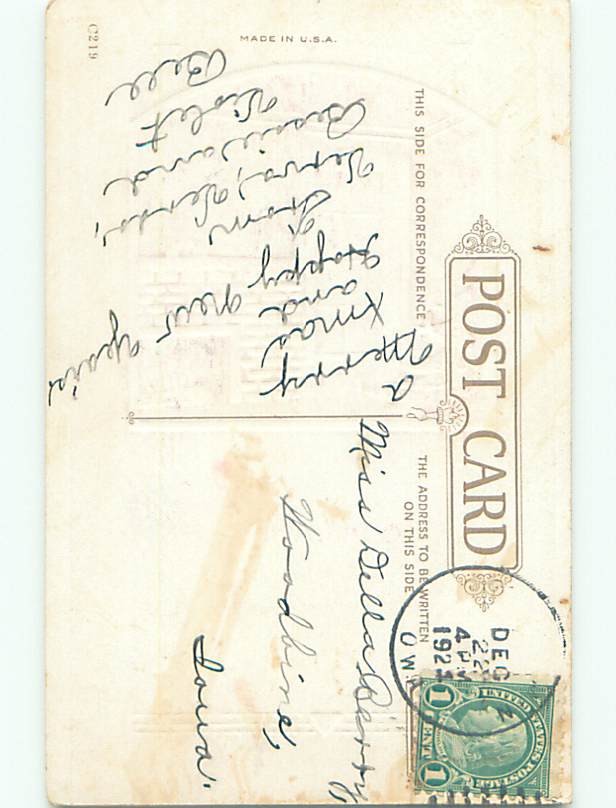 C219
MADE IN U.S.A.
POST CARD
THIS SIDE FOR CORRESPONDENCE
THE ADDRESS TO BE WRITTEN
ON THIS SIDE
a
Merry
Xmas
and
Happy New Year
From
Verna, Verda,
Bessie and
Violet
Bell
Miss Della Barry
Woodbine,
Iowa.
DEC
22
4 PM
192
UNITED STATES POSTAGE
1 CENT 1